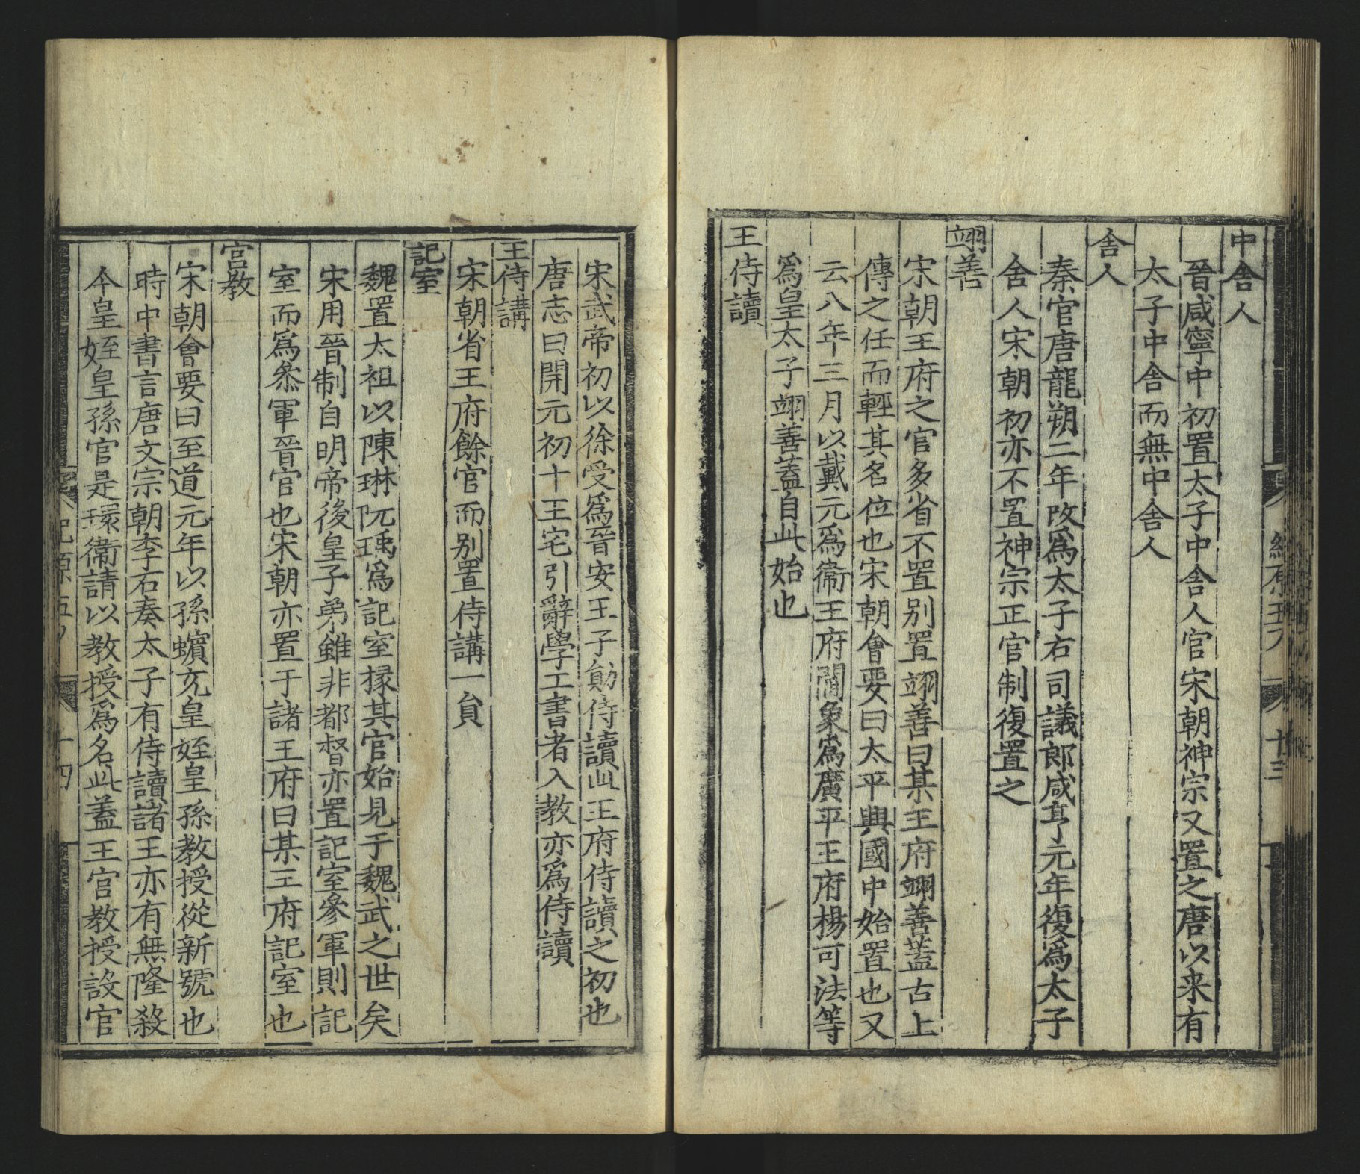 中舍人
晉咸寧中初置太子中舍人官宋朝神宗又置之唐以来有
太子中舍而無中舍人
舍人
秦官唐龍朔二年改爲太子右司議郎咸亨元年復爲太子
舍人宋朝初亦不置神宗正官制復置之
翊善
宋朝王府之官多省不置别置翊善曰某王府翊善蓋古上
傳之任而輕其名位也宋朝會要曰太平興國中始置也又
云八年三月以戴元爲衞王府閻象爲廣平王府楊可法等
爲皇太子翊善蓋自此始也
王侍讀
宋武帝初以徐受爲晉安王子勛侍讀此王府侍讀之初也
唐志曰開元初十王宅引辭學工書者入教亦爲侍讀
王侍講
宋朝省王府餘官而别置侍講一負
記室
魏置太祖以陳琳阮瑀爲記室掾其官始見于魏武之世矣
宋用晉制自明帝後皇子弟雖非都督亦置記室叅軍則記
室而爲叅軍晉官也宋朝亦置于諸王府曰某王府記室也
宫教
宋朝會要曰至道元年以孫蠙充皇姪皇孫教授從新號也
時中書言唐文宗朝李石奏太子有侍讀諸王亦有無隆殺
今皇姪皇孫官是環衞請以教授爲名此蓋王官教授設官
紀原五 十四